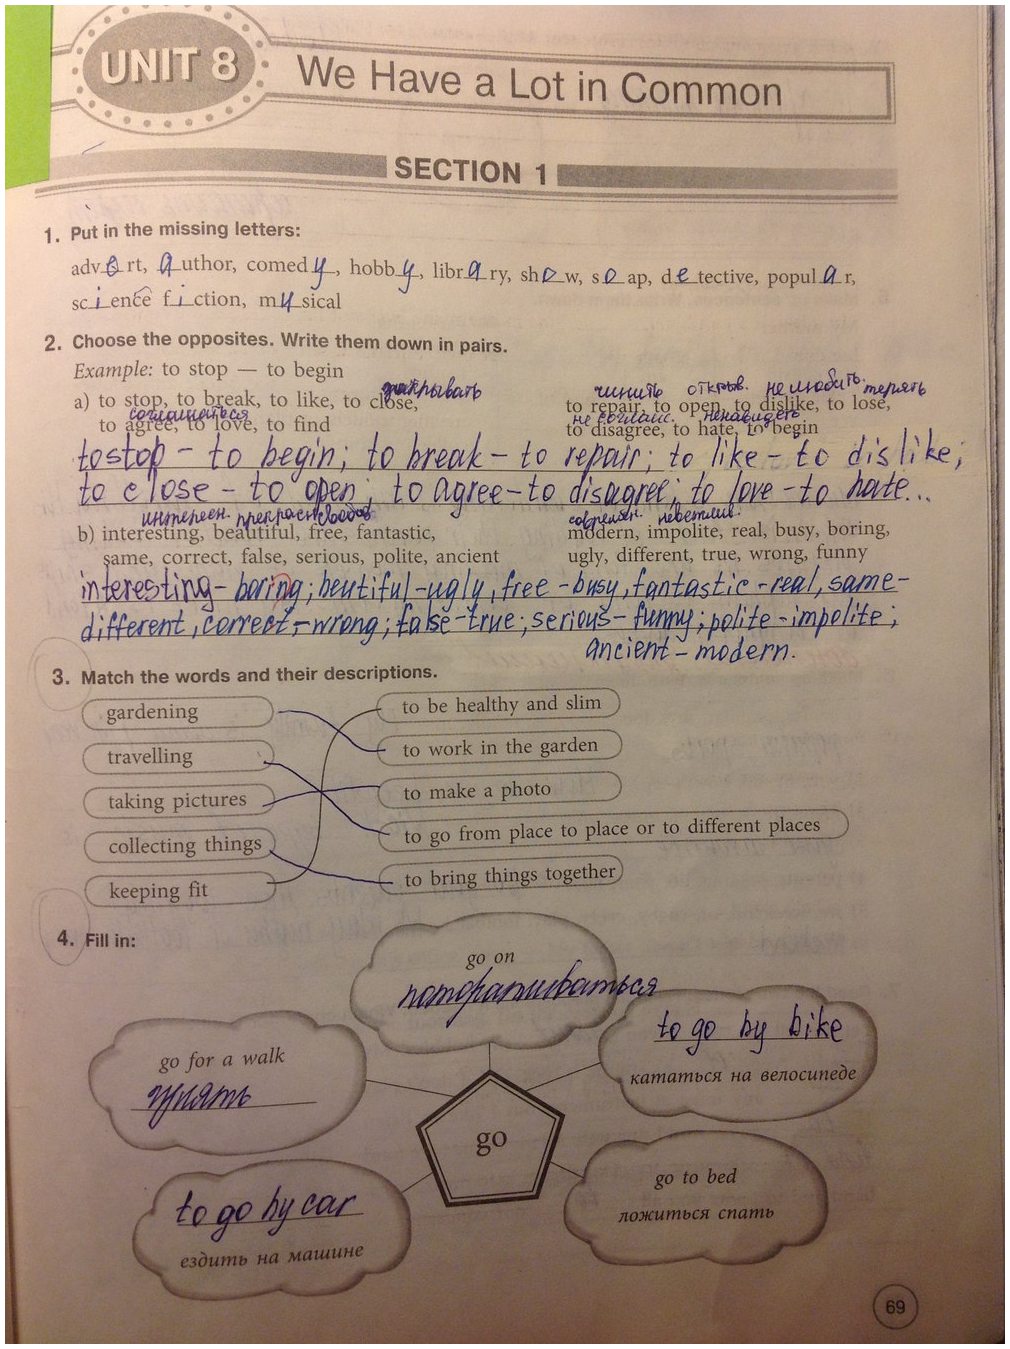 UNIT 8
We Have a Lot in Common
SECTION 1
1. Put in the missing letters:
advert, author, comedy, hobby, library, show, soap, detective, popular,
science fiction, musical
2. Choose the opposites. Write them down in pairs.
Example: to stop — to begin
закрывать
чинить открыв. не любить. терять
a) to stop, to break, to like, to close,
to repair, to open, to dislike, to lose,
соглашаться
не соглаш. ненавидеть
to agree, to love, to find
to disagree, to hate, to begin
to stop – to begin; to break – to repair; to like – to dislike;
to close – to open; to agree – to disagree; to love – to hate...
интересн. прекрасн свобод
современ. невежлив.
b) interesting, beautiful, free, fantastic,
modern, impolite, real, busy, boring,
same, correct, false, serious, polite, ancient
ugly, different, true, wrong, funny
interesting – boring; beutiful – ugly, free – busy, fantastic – real, same –
different, correct, – wrong; false – true; serious – funny; polite – impolite;
ancient – modern.
3. Match the words and their descriptions.
gardening
to be healthy and slim
travelling
to work in the garden
taking pictures
to make a photo
collecting things
to go from place to place or to different places
keeping fit
to bring things together
4. Fill in:
go on
поторапливаться
to go by bike
кататься на велосипеде
go for a walk
гулять
go
go to bed
ложиться спать
to go by car
ездить на машине
69